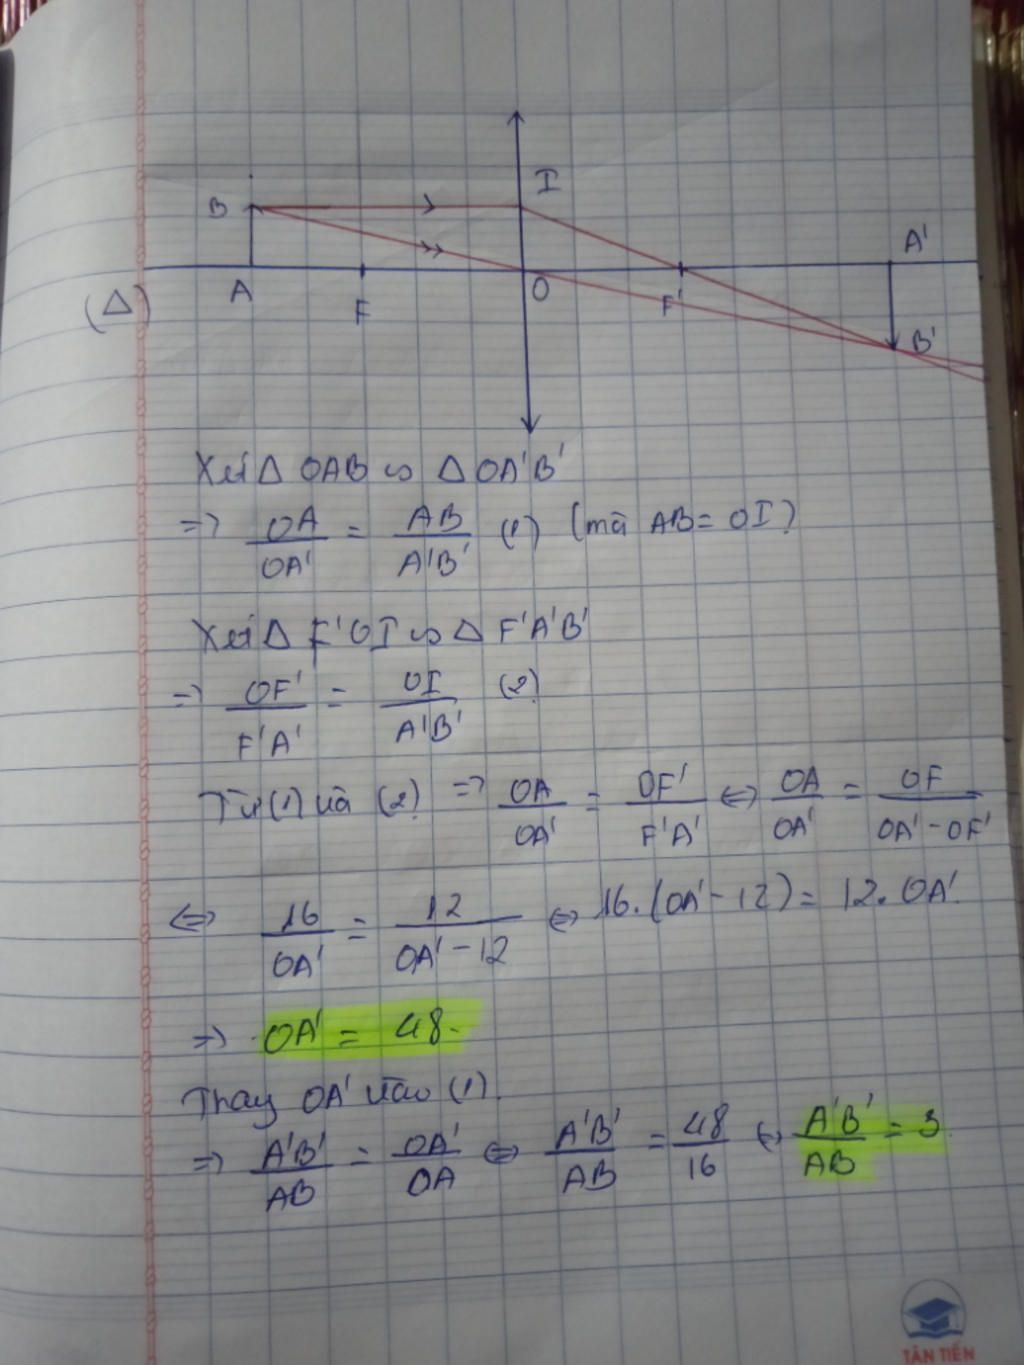 I
B
A'
A
O
(Δ)
F
F'
B'
Xét Δ OAB ∽ Δ OA'B'
=> OA/OA' = AB/A'B' (1) (mà AB = OI)
Xét Δ F'OI ∽ Δ F'A'B'
=> OF'/F'A' = OI/A'B' (2)
Từ (1) và (2) => OA/OA' = OF'/F'A' <=> OA/OA' = OF/OA' - OF'
<=> 16/OA' = 12/OA' - 12 <=> 16.(OA' - 12) = 12.OA'.
=> OA' = 48.
Thay OA' vào (1).
=> A'B'/AB = OA'/OA <=> A'B'/AB = 48/16 <=> A'B'/AB = 3.
TÂN TIẾN